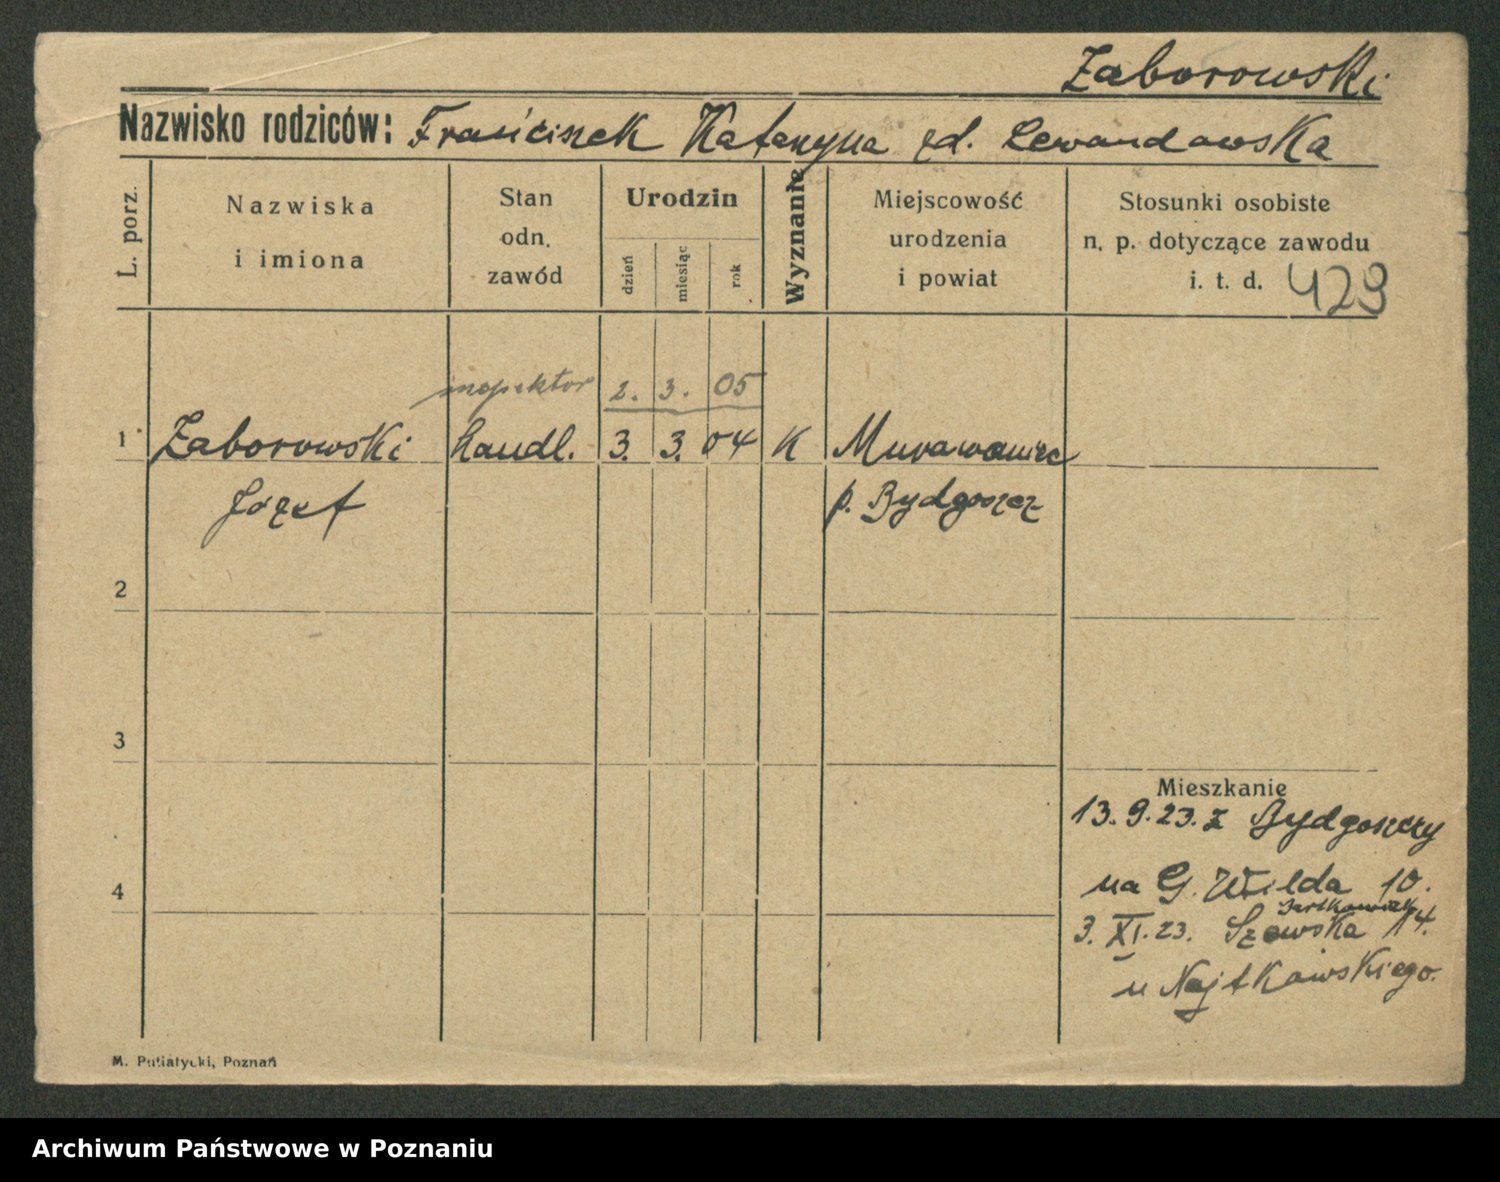 Zaborowski
Nazwisko rodziców: Franciszek Katarzyna zd. Lewandowska
L. porz.
Nazwiska
i imiona
Stan
odn.
zawód
Urodzin
dzień
miesiąc
rok
Wyznanie
Miejscowość
urodzenia
i powiat
Stosunki osobiste
n. p. dotyczące zawodu
i. t. d. 429
inspektor 2. 3. 05
1 Zaborowski handl. 3. 3. 04 K Murowaniec
Józef p. Bydgoszcz
2
3
Mieszkanie
13.9.23. z Bydgoszczy
4
na G. Wilda 10.
3. XI. 23. Szewska 14.
u
M. Putiatycki, Poznań
Archiwum Państwowe w Poznaniu